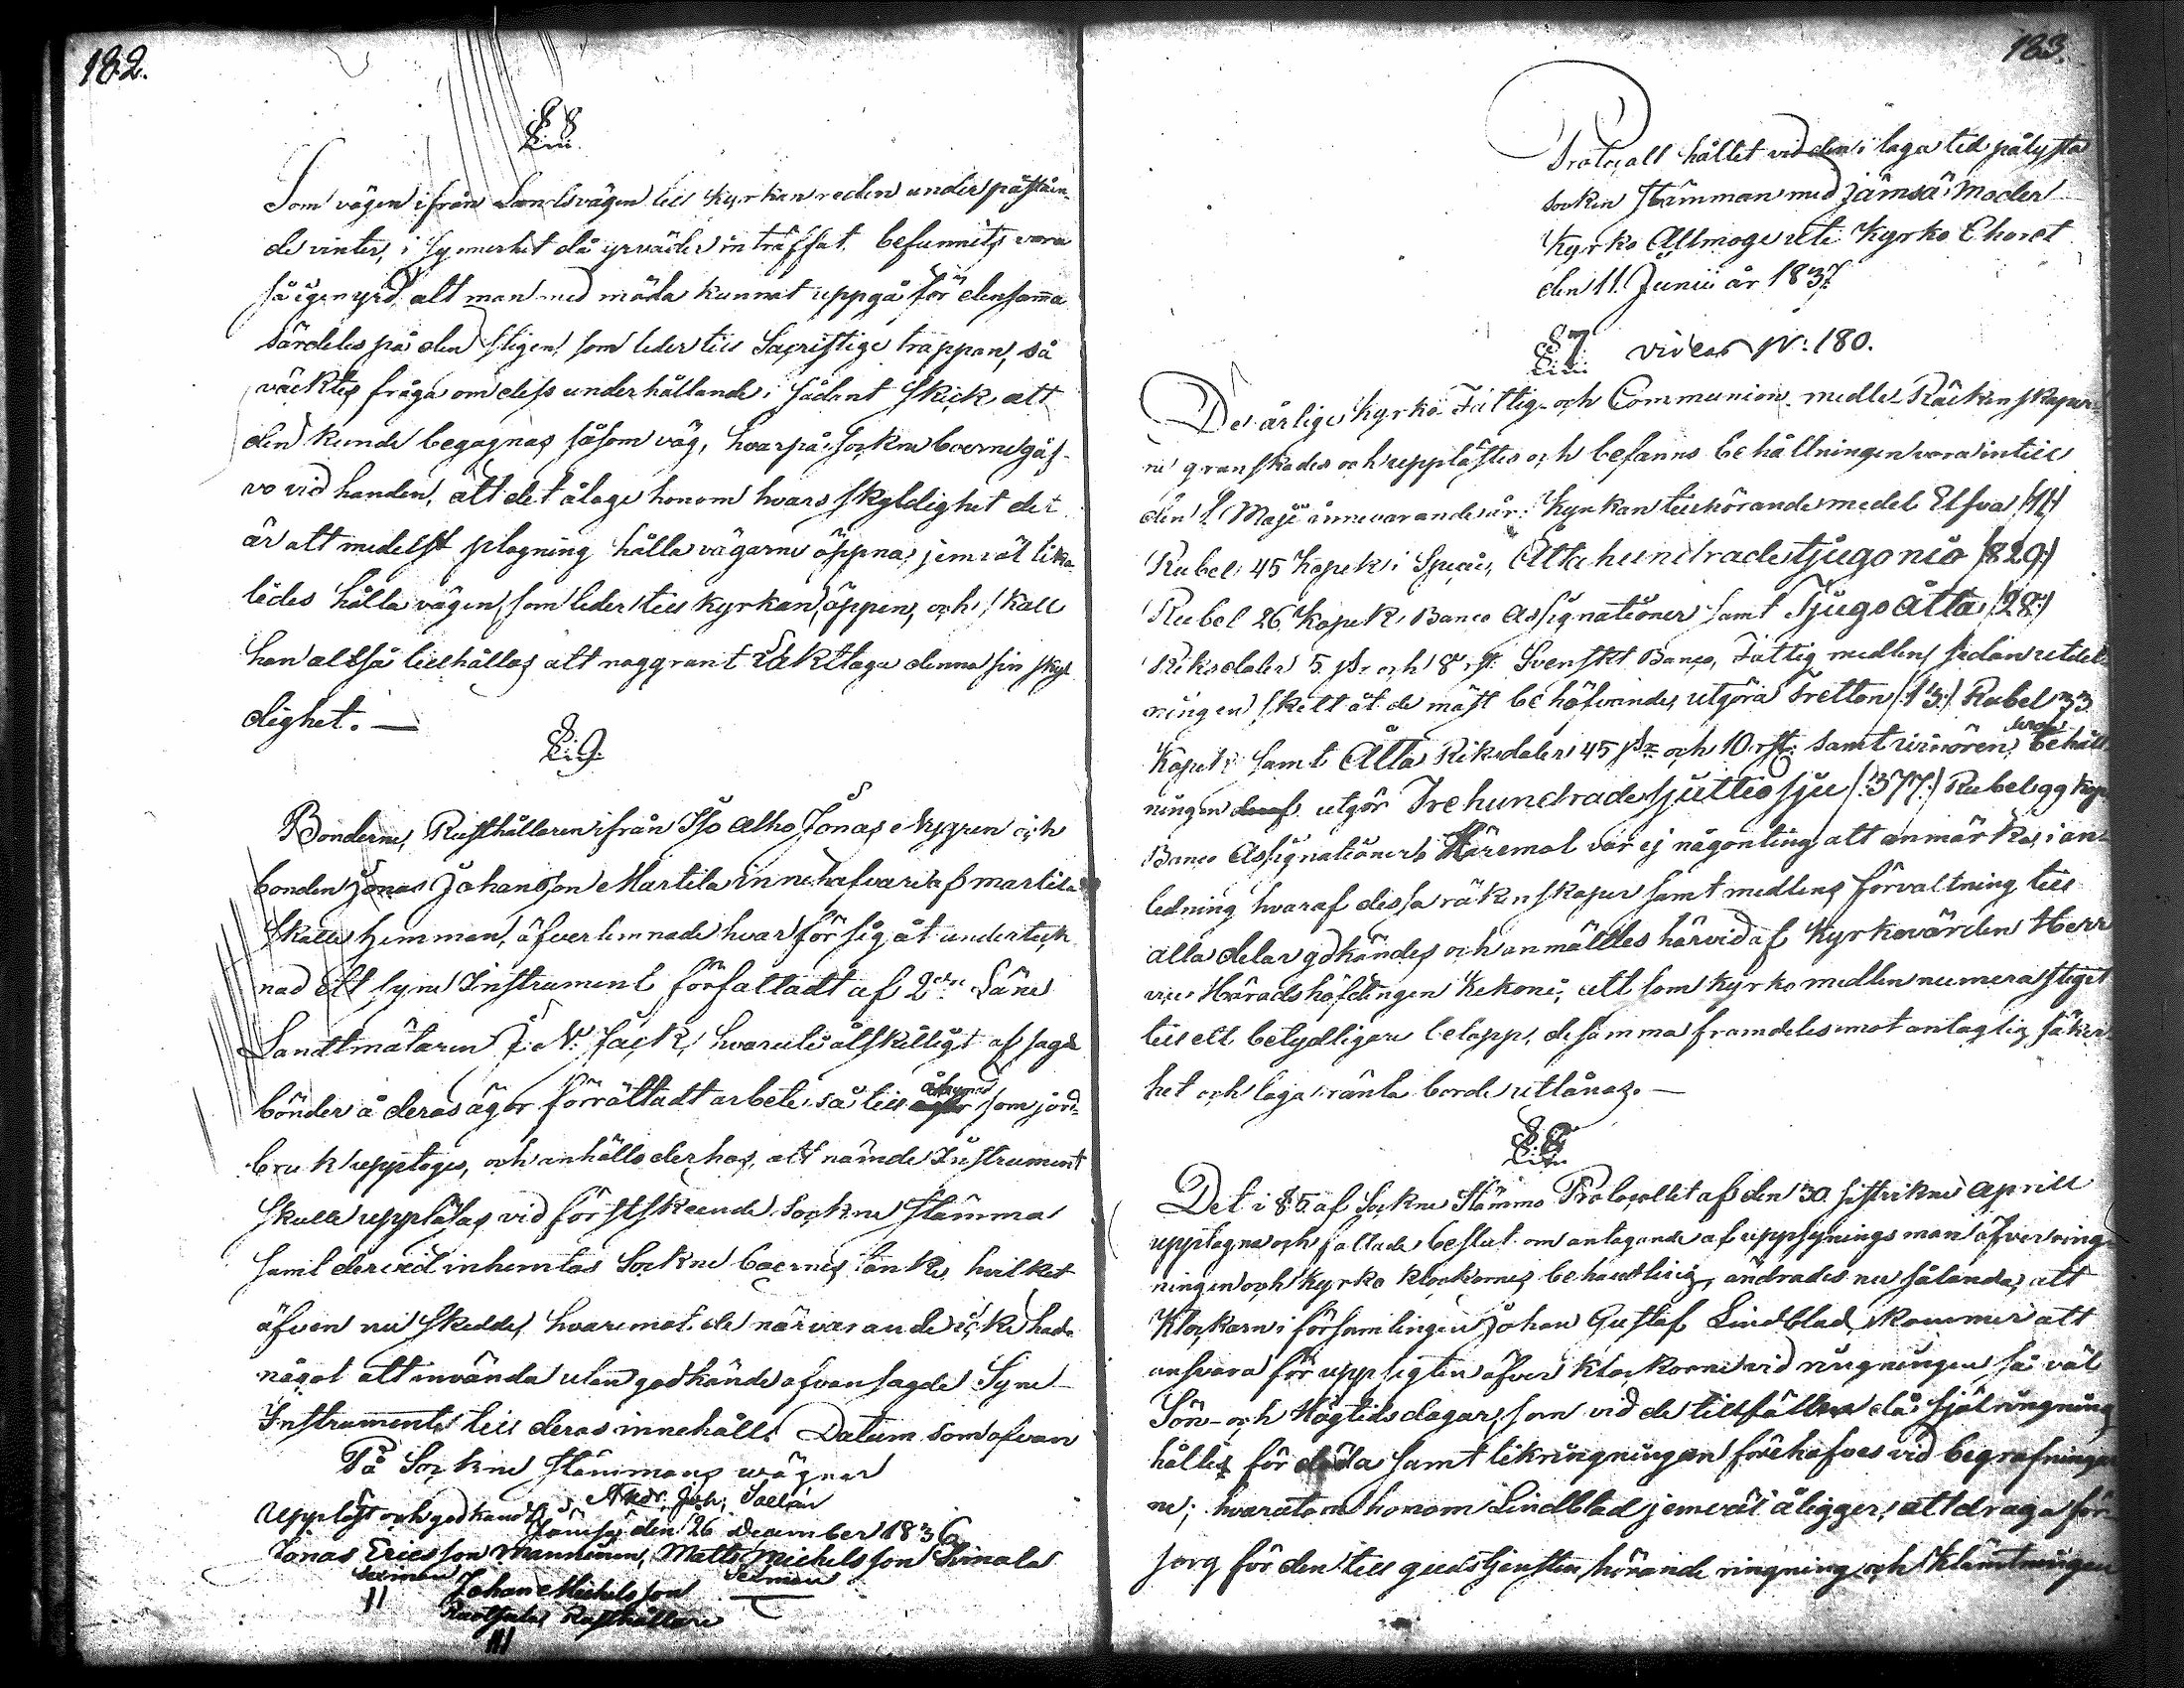 182.
§ 8
Som vägen ifrån Landsvägen till Kyrkan redan under påståen-
de vinter, i synnerhet då yrväder inträffat, befunnits vara
så igenyrd, att man med möda kunnat uppgå för densamma
särdeles på den stigen, som leder till Sacristige trappan, så
väcktes fråga om dess underhållande i sådant skick att
den kunde begagnas såsom väg, hvarpå Sockneboerne gåf-
vo vid handen, att det ålage honom hvars skyldighet det
är att medelst plogning hålla vägarne öppna, jemväl lika-
ledes hålla vägen, som leder till Kyrkan, öppen, och skall
han altså tillhållas att noggrant iakttaga denna sin skyl
dighet. —
§ 9.
Bönderne, Rusthållaren ifrån Iso Alho Jonas Nygren och
bonden Jonas Johansson Martila innehafvare af Martila
Skatte hemman, äfverlemnade hvar för sig åt underteck
nad ett syne Instrument författadt af 2dre Läne
Landtmätaren J. N. Fäck, hvaruti åtskilligt af sagde
bönder å deras ägor förrättadt arbete, så till som jord-
bruk upptoges, och anhölls derhos, att nämde Instrument
skulle uppläsas vid förstskeende Sockne stämma
samt dervid inhemtas Sockneboernes tanke, hvilket
äfven nu skedde, hvaremot de närvarande icke hade
något att invända utan godkände ofvansagde Syne
Instrumente till deras innehåll. Datum som ofvan
På Sockne stämmans wägnar
Andr. Joh. Sallin
Uppläst och godkändt, Jämsä den 26 December 1836
Jonas Ericsson Manninen, Matts Michelsson Himala
Sexman Sexman
Johan Michelsson
Rusthållare
183.
Protocoll hållet vid den i laga tid pålysta
socken Stämman med Jämsä Moder
Kyrko Allmoge uti Kyrko Choret
den 11. Junii år 1837.
§ 7 vidcas N: 180.
De årlige Kyrko Fattig- och Communion medlel Räkenskaper-
ne granskades och upplästes och befanns behållningen vara intill
den 1 Maji innevarande år: Kyrkan tillhörande medel Elfva /11/
Rubel 45 Kopek i Specie, Åttahundrade tjugonio /829:/
Rubel 26 Kopek Banco Assignationer samt Tjugoåtta /28:/
Riksdaler 5 s. och 8 r. Svenskt Banco, Fattig medlen, sedan utdel-
ningen skett åt de mäst behöfvande, utgöra Tretton /:13:/ Rubel 33
Kopek samt Åtta Riksdaler 45 s. och 10 rst. samt behåll-
ningen deraf utgör Trehundrade sjuttiosju /:377:/ Rubel 99 Kop.
Banco Assignationer. Häremot var ej någonting att anmärka, i an-
ledning hvaraf dessa räkenskaper samt medlens förvaltning till
alla delar godkändes och anmältes härvid af Kyrkovärden Herr
vice Häradshöfdingen Kekoni, att som Kyrko medlen numera stiget
till ett betydligare belopp, desamma framdeles mot antaglig säker-
het och laga ränta borde utlånas. —
§ 8
Det i § 5 af Sockne Stämmo Protocollet af den 30 sistvikne Aprill
upptagna och fattade beslut om antagande af uppsyningsman öfver ring-
ningen och Kyrko klockornes behandling, ändrades nu sålunda, att
Klockaren i församlingen Johan Gustaf Lindblad kommer att
ansvara för uppsigten öfver klockorne vid ringningen, så väl
Sön- och Högtidsdagar, som vid de tillfällen då själringning
hålles för döda samt likringningen förehafves vid begrafningar
ne; hvarutom honom Lindblad jemväl åligger, att draga för-
sorg för den till gudstjensten hörande ringning och klämtningen